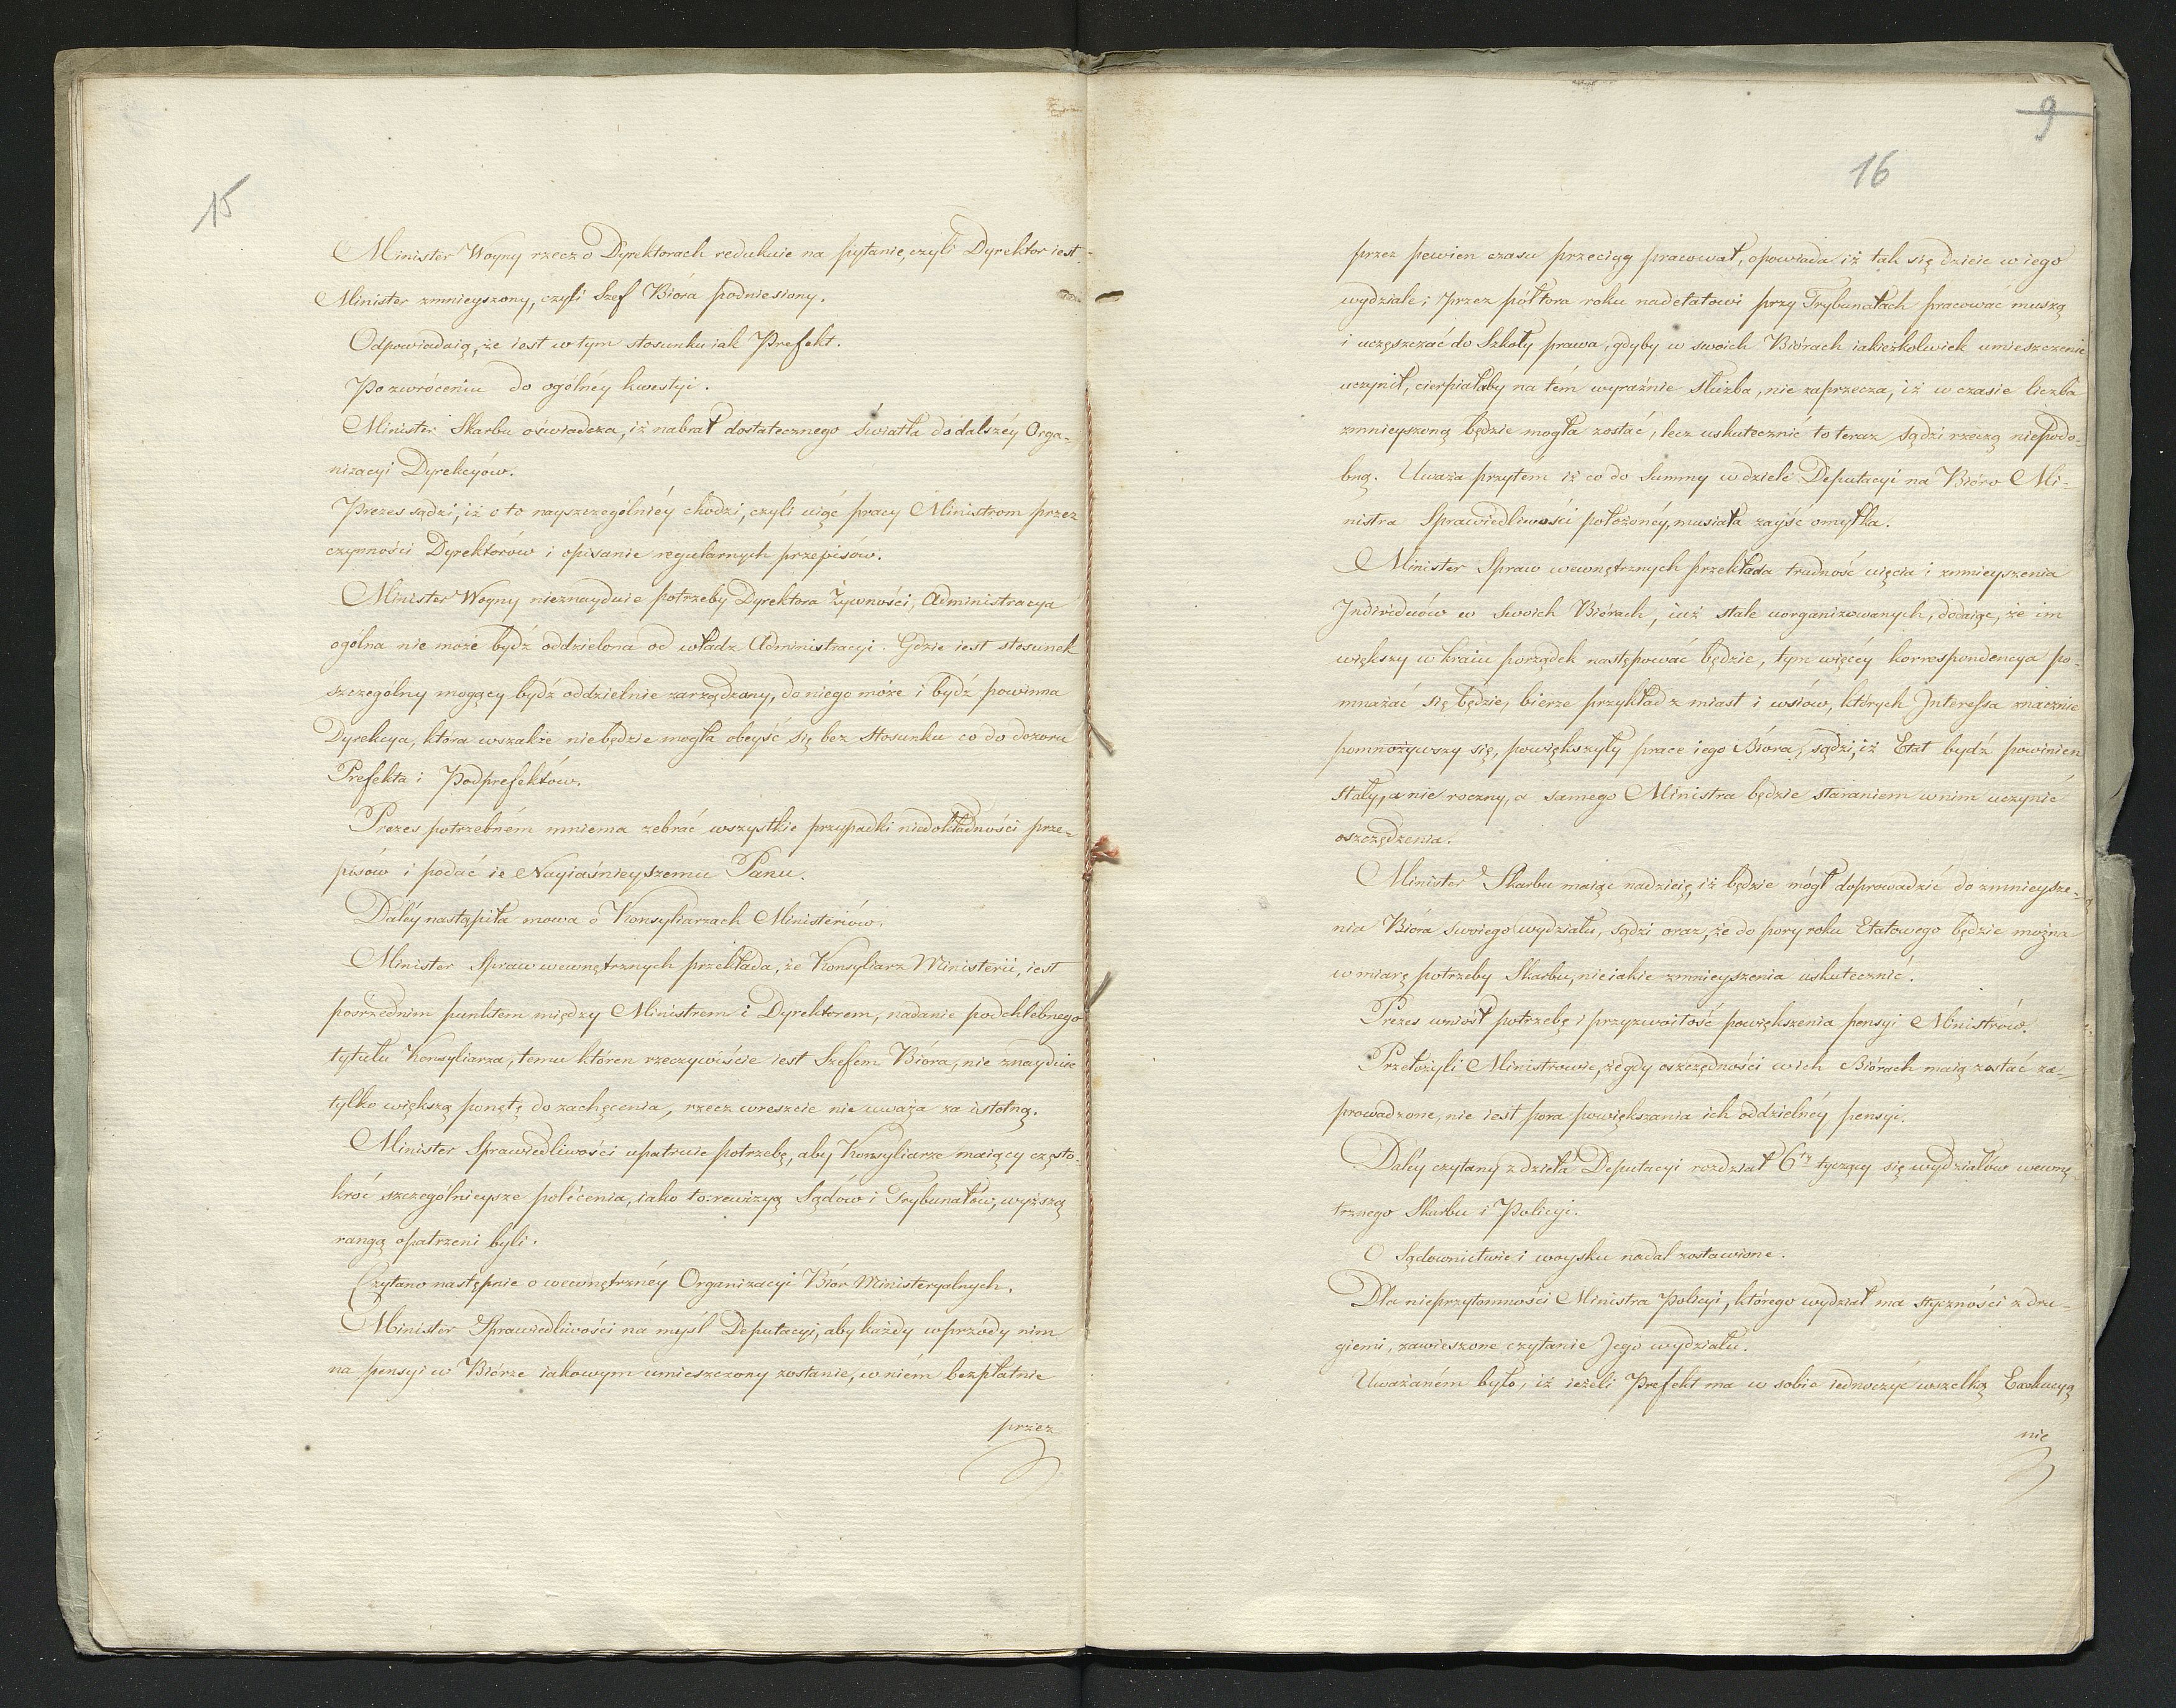 15
Minister Woyny rzecz o Dyrektorach redukuie na pytanie, czyli Dyrektor iest
Minister zmnieyszony, czyli Szef Bióra podniesiony.
Odpowiadaią, że iest w tym stosunku iak Prefekt.
Po zwróceniu do ogólnéy kwestyi.
Minister Skarbu oświadcza, iż nabrał dostatecznego światła do dalszéy Orga-
nizacyi Dyrekcyów.
Prezes sądzi, iż o to nayszczególniéy chodzi, czyli uiąć pracy Ministrom przez
czynności Dyrektorów i opisanie regularnych przepisów.
Minister Woyny nieznayduie potrzeby Dyrektora Żywności, Administracya
ogólna nie może bydź oddzielona od władz Administracyi. Gdzie iest stosunek
szczególny mogący bydź oddzielnie zarządzany, do niego może i bydź powinna
Dyrekcya, która wszakże niebędzie mogła obeyść się bez stosunku co do dozoru
Prefekta i Podprefektów.
Prezes potrzebném mniema zebrać wszystkie przypadki niedokładności prze-
pisów i podać ie Nayiaśnieyszemu Panu.
Daléy nastąpiła mowa o Konsyliarzach Ministeriów.
Minister Spraw wewnętrznych przekłada, że Konsyliarz Ministerii, iest
pośrzednim punktem między Ministrem i Dyrektorem, nadanie podchlébnego
tytułu Konsyliarza, temu któren rzeczywiście iest Szefem Bióra, nie znayduie
tylko większą ponętę do zachęcenia, rzecz wreszcie nie uważa za istotną.
Minister Sprawiedliwości upatruie potrzebę, aby Konsyliarze maiący często-
kroć szczególnieysze polécenia, iako to: rewizyą Sądów i Trybunałów, wyższą
rangą opatrzeni byli.
Czytano następnie o wewnętrznéy Organizacyi Biór Ministeryalnych.
Minister Sprawiedliwości na myśl Deputacyi, aby każdy wprzódy nim
na pensyi w Biórze iakowym umieszczony zostanie, w niém bezpłatnie
przez
9
16
przez pewien czasu przeciąg pracował, opowiada iż tak się dzieie w iego
wydziale; przez półtora roku nadetatowi przy Trybunałach pracować muszą
i uczęszczać do Szkoły prawa, gdyby w swoich Biórach iakieżkolwiek umieszczenie
uczynił, cierpiałaby na tém wyraźnie służba, nie zaprzecza, iż w czasie liczba
zmnieyszoną będzie mogła zostać, lecz uskutecznić to teraz sądzi rzeczą niepodo-
bną. Uważa przytém iż co do Summy w dziele Deputacyi na Bióro Mi-
nistra Sprawiedliwości położonéy, musiała zayść omyłka.
Minister Spraw wewnętrznych przekłada trudność uięcia i zmnieyszenia
Indiwiduów w swoich Biórach, iuż stale uorganizowanych, dodaiąc, że im
większy w kraiu porządek następować będzie, tym więcéy korrespondencya po-
mnażać się będzie, bierze przykład z miast i wsiów, których Interessa znacznie
pomnożywszy się, powiększyły prace iego Bióra, sądzi, iż Etat bydź powinien
stały, a nie roczny, a samego Ministra będzie staraniem w nim uczynić
oszczędzenia.
Minister Skarbu maiąc nadzieię, iż będzie mógł doprowadzić do zmnieysze-
nia Bióra swoiego wydziału, sądzi oraz, że do pory roku Etatowego będzie można
w miarę potrzeby Skarbu, nieiakie zmnieyszenia uskutecznić.
Prezes wniósł potrzebę i przyzwoitość powiększenia pensyi Ministrów.
Przełożyli Ministrowie, że gdy oszczędności w ich Biórach maią zostać za-
prowadzone, nie iest pora powiększania ich oddzielnéy pensyi.
Daléy czytany z dzieła Deputacyi rozdział 6ty tyczący się wydziałów wewnę-
trznego Skarbu i Policyi.
O Sądownictwie i woysku nadal zostawione.
Dla nieprzytomności Ministra Policyi, którego wydział ma styczności z dru-
giemi, zawieszone czytanie Jego wydziału.
Uważaném było, iż ieżeli Prefekt ma w sobie iednoczyć wszelką Exekucyą
nie